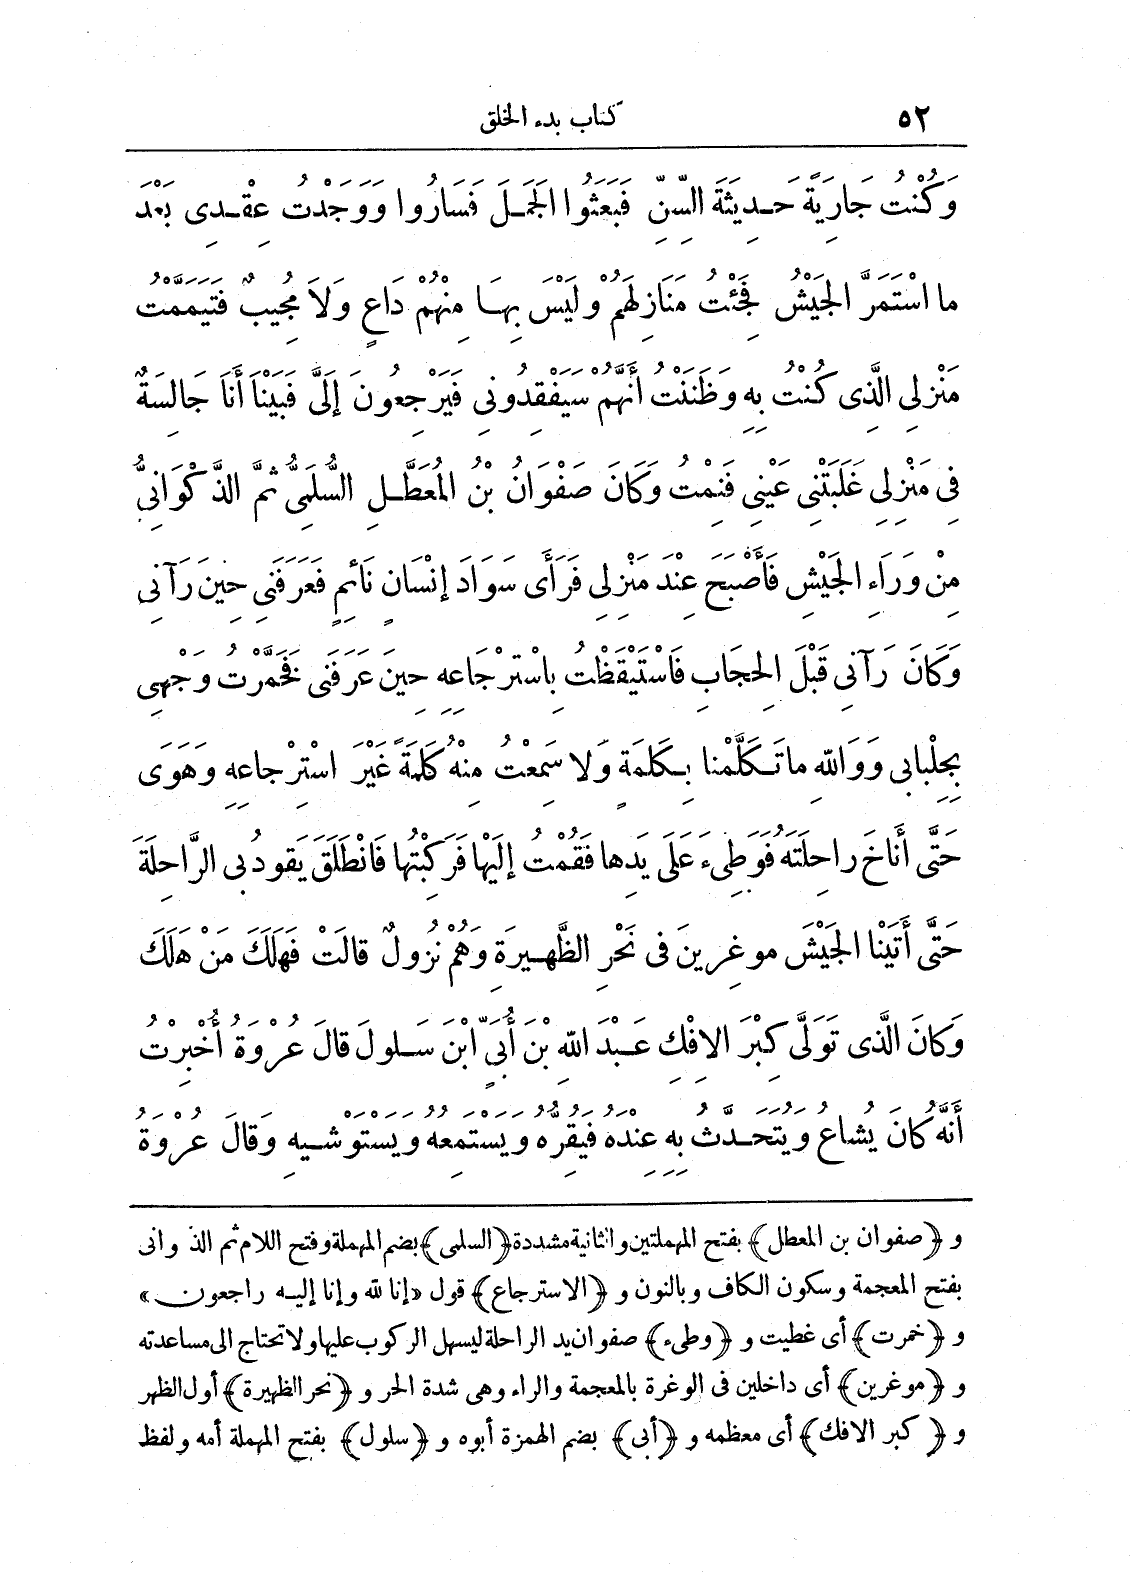 ٥٢ كتاب بدء الخلق
وَكُنْتُ جَارِيَةً حَدِيثَةَ السِّنِّ فَبَعَثُوا الجَمَلَ فَسَارُوا وَوَجَدْتُ عِقْدِى بَعْدَ
ما اسْتَمَرَّ الجَيْشُ فَجِئْتُ مَنَازِلَهُمْ وَلَيْسَ بِهَا مِنْهُمْ دَاعٍ وَلاَ مُجِيبٌ فَتَيَمَّمْتُ
مَنْزِلِى الَّذِى كُنْتُ بِهِ وَظَنَنْتُ أَنَّهُمْ سَيَفْقِدُونِى فَيَرْجِعُونَ إِلَىَّ فَبَيْنَا أَنَا جَالِسَةٌ
فِى مَنْزِلِى غَلَبَتْنِى عَيْنِى فَنِمْتُ وَكَانَ صَفْوَانُ بْنُ المُعَطَّلِ السُّلَمِىُّ ثُمَّ الذَّكْوَانِىُّ
مِنْ وَرَاءِ الجَيْشِ فَأَصْبَحَ عِنْدَ مَنْزِلِى فَرَأَى سَوَادَ إِنْسَانٍ نَائِمٍ فَعَرَفَنِى حِينَ رَآنِى
وَكَانَ رَآنِى قَبْلَ الحِجَابِ فَاسْتَيْقَظْتُ بِاسْتِرْجَاعِهِ حِينَ عَرَفَنِى فَخَمَّرْتُ وَجْهِى
بِجِلْبابِى وَوَاللهِ ما تَكَلَّمْنا بِكَلِمَةٍ وَلا سَمِعْتُ مِنْهُ كَلِمَةً غَيْرَ اسْتِرْجاعِهِ وهَوَى
حَتَّى أَنَاخَ راحِلَتَهُ فَوَطِىءَ عَلَى يَدِها فَقُمْتُ إِلَيْها فَرَكِبْتُها فَانْطَلَقَ يَقودُ بِى الرَّاحِلَةَ
حَتَّى أَتَيْنَا الجَيْشَ موغِرِينَ فى نَحْرِ الظَّهِيرَةِ وَهُمْ نُزولٌ قالَتْ فَهَلَكَ مَنْ هَلَكَ
وَكَانَ الَّذى تَوَلَّى كِبْرَ الإِفْكِ عَبْدَ اللهِ بْنَ أُبَىٍّ ابْنَ سَلولَ قالَ عُرْوَةُ أُخْبِرْتُ
أَنَّهُ كانَ يُشاعُ وَيُتَحَدَّثُ بِهِ عِنْدَهُ فَيُقِرُّهُ وَيَسْتَمِعُهُ وَيَسْتَوْشِيهِ وَقالَ عُرْوَةُ
و﴿صفوان بن المعطل﴾ بفتح المهملتين والثانية مشددة ﴿السلمى﴾ بضم المهملة وفتح اللام ثم الذ وانى
بفتح المعجمة وسكون الكاف وبالنون و﴿الاسترجاع﴾ قول «إنا لله وإنا إليه راجعون»
و﴿خمرت﴾ أى غطيت و﴿وطىء﴾ صفوان يد الراحلة ليسهل الركوب عليها ولا تحتاج الى مساعدته
و﴿موغرين﴾ أى داخلين فى الوغرة بالمعجمة والراء وهى شدة الحر و﴿نحر الظهيرة﴾ أول الظهر
و﴿كبر الافك﴾ أى معظمه و﴿أبى﴾ بضم الهمزة أبوه و﴿سلول﴾ بفتح المهملة أمه ولفظ